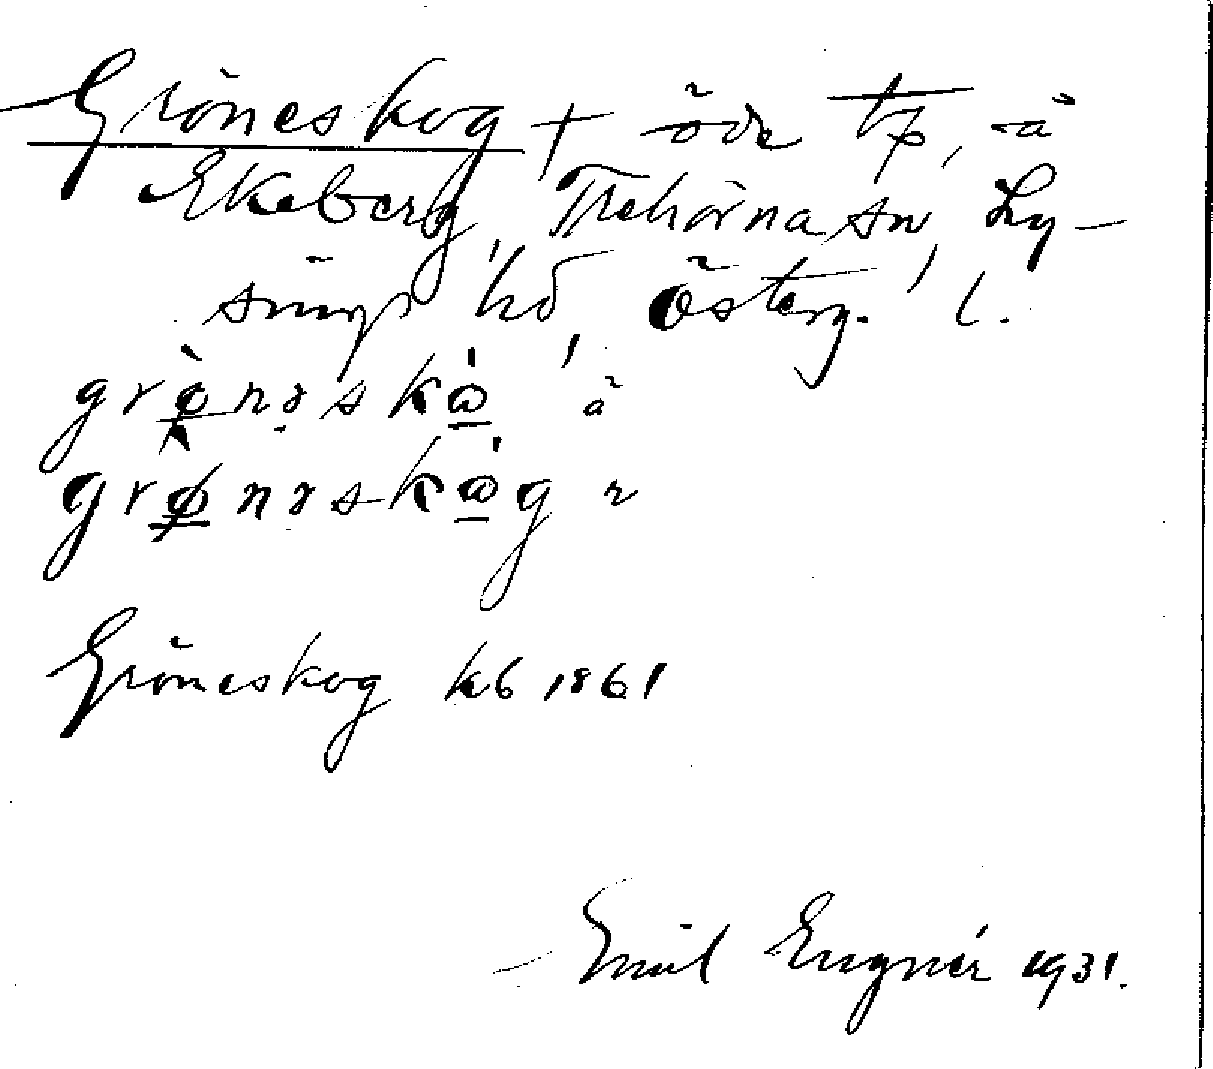 Gröneskog + öde tp, å
Ekeberg, Trehörna sn, Ly-
sings hd, Österg. l.
grø̀nəskɷ́ å
grønəskɷ́g r
Gröneskog kb 1861
Emil Engnér 1931.